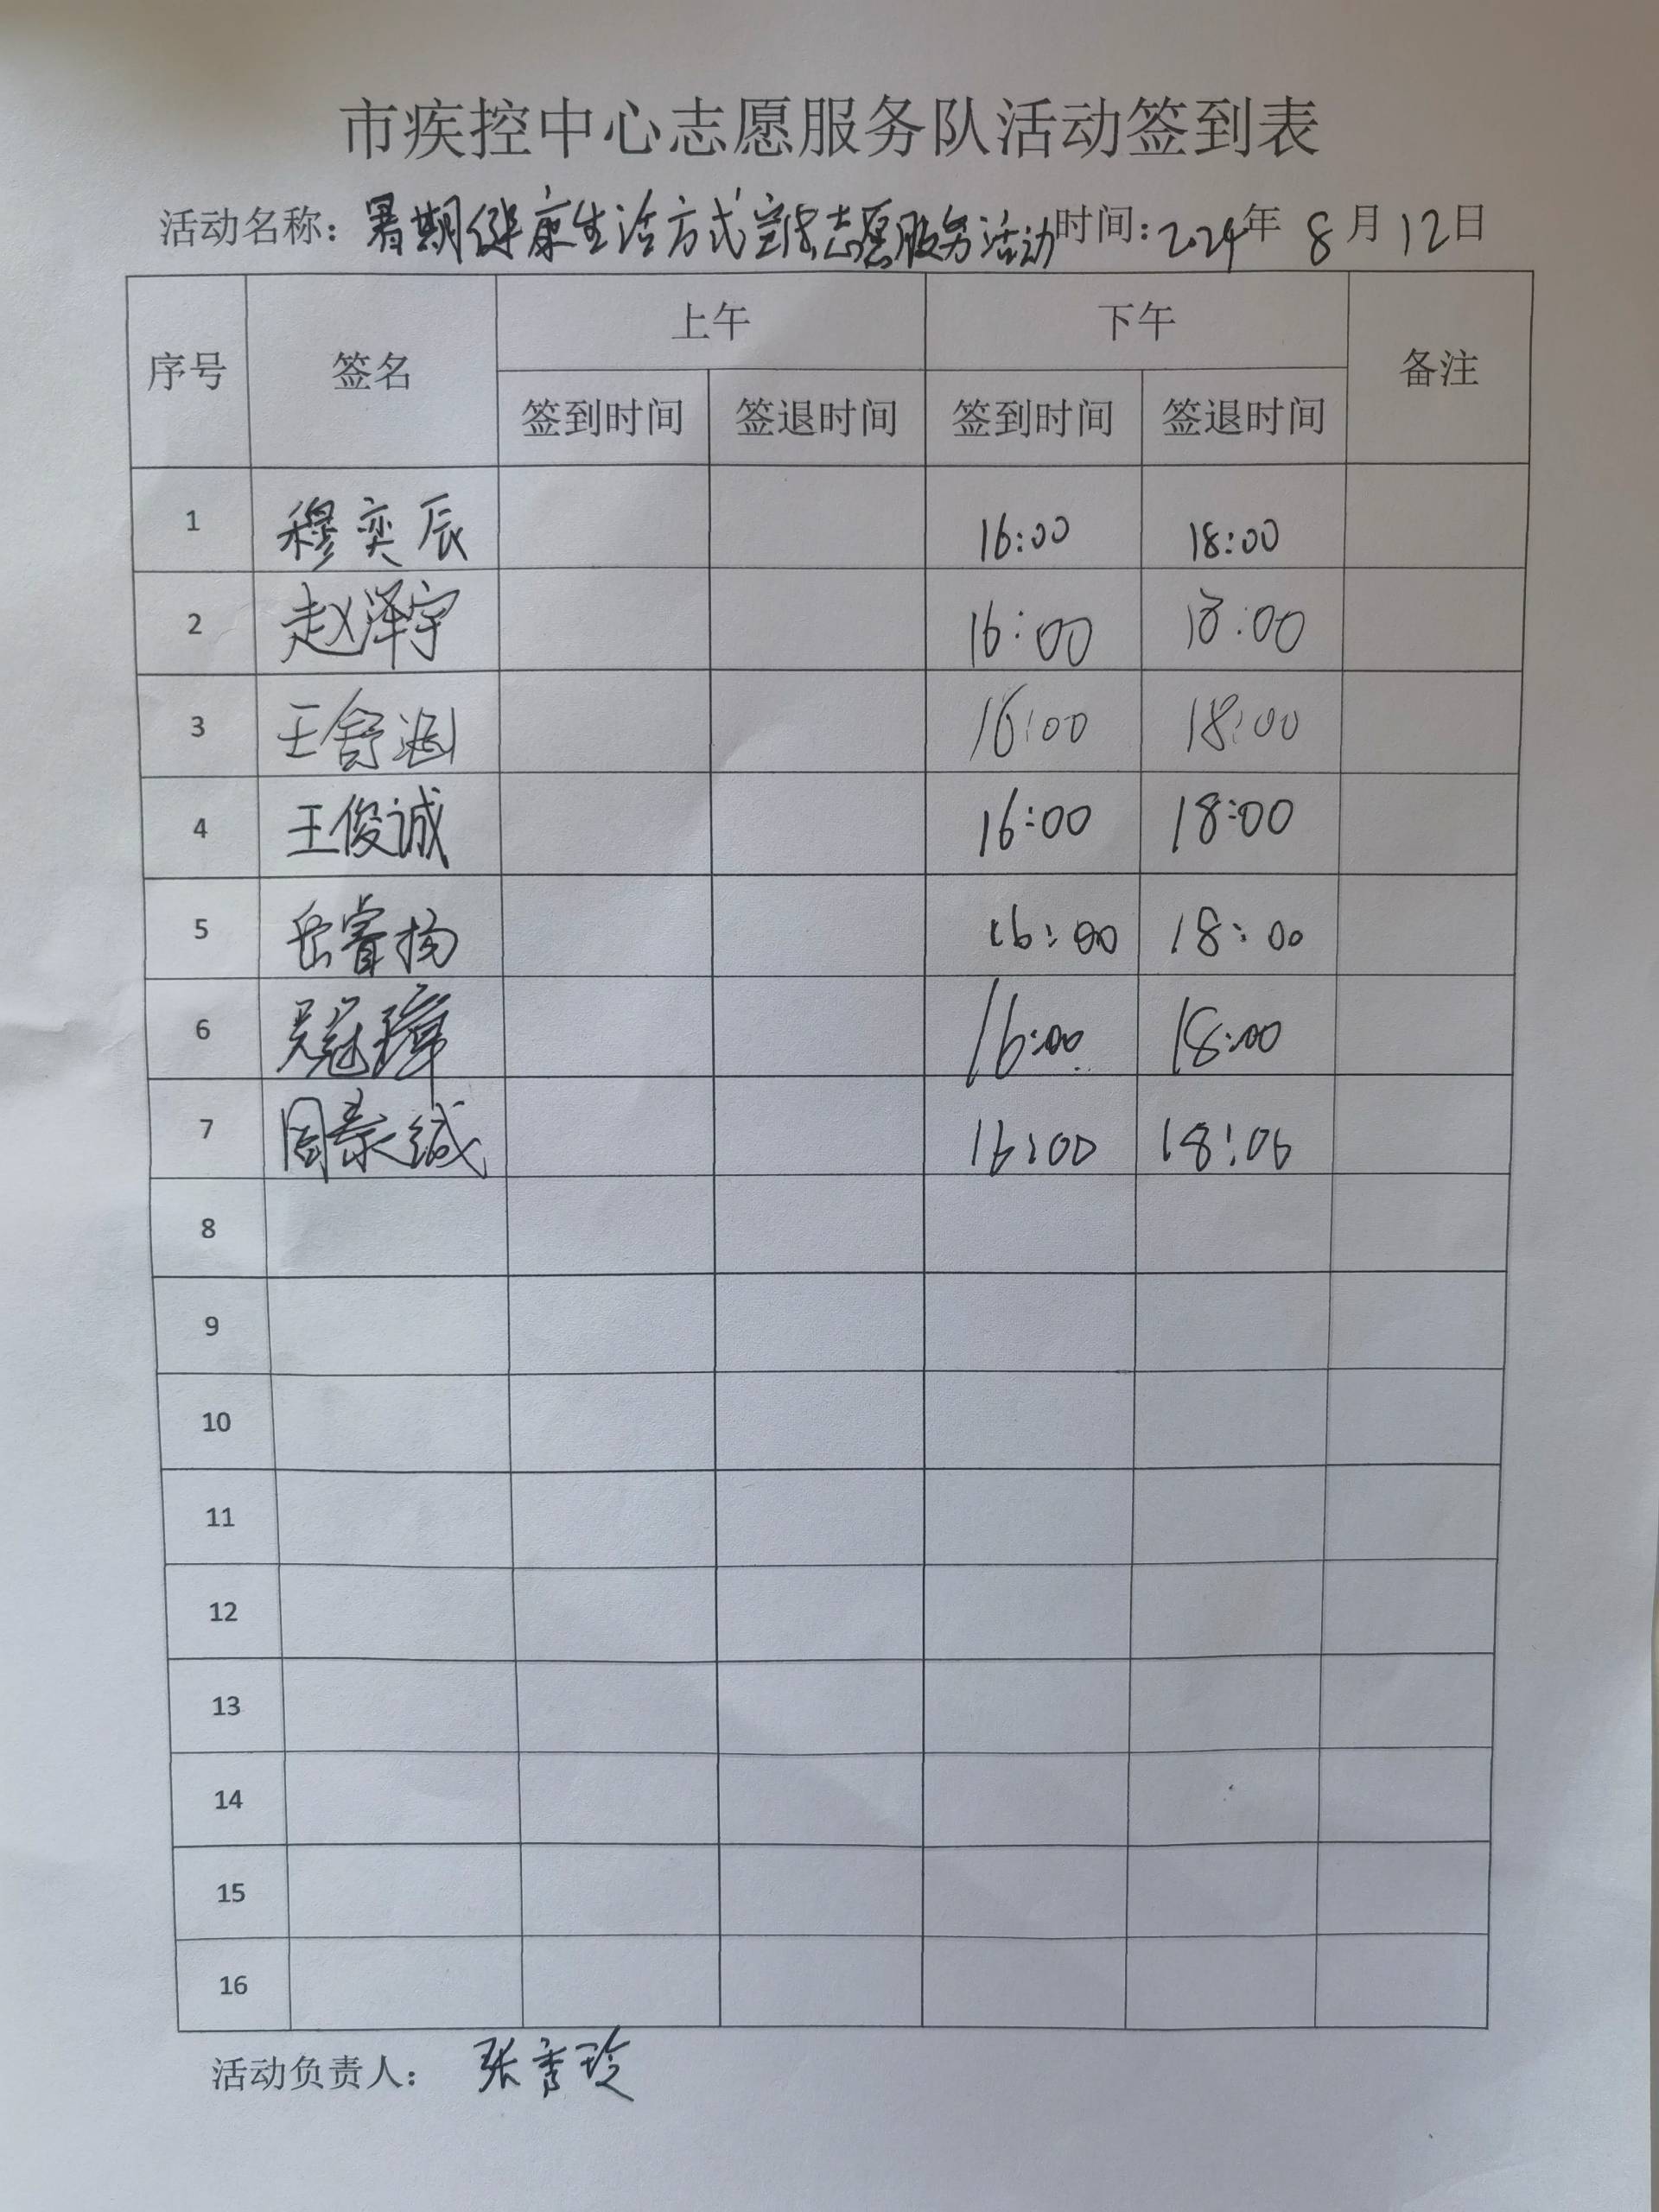 市疾控中心志愿服务队活动签到表
活动名称：暑期健康生活方式宣传志愿服务活动时间：2024年 8月12日
序号 签名 上午 下午 备注
签到时间 签退时间 签到时间 签退时间
1 穆奕辰 16:00 18:00
2 赵泽宇 16:00 18:00
3 王舒涵 16:00 18:00
4 王俊诚 16:00 18:00
5 岳睿扬 16:00 18:00
6 吴冠璋 16:00 18:00
7 周 16:00 18:06
8
9
10
11
12
13
14
15
16
活动负责人：张秀玲